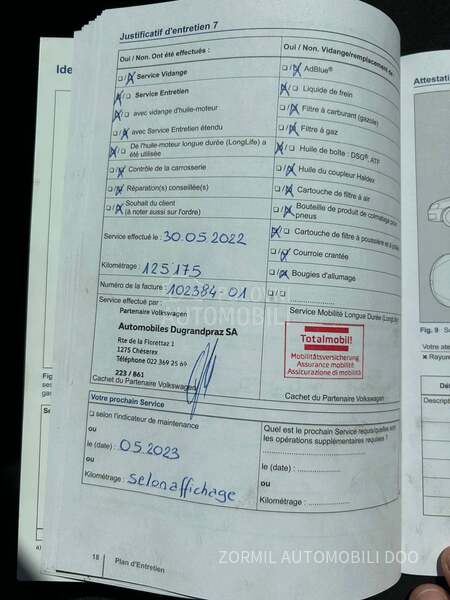 Justificatif d'entretien 7
Oui / Non. Ont été effectués :
Service Vidange
Service Entretien
avec vidange d'huile-moteur
avec Service Entretien étendu
De l'huile-moteur longue durée (LongLife) a
été utilisée
Contrôle de la carrosserie
Réparation(s) conseillée(s)
Souhait du client
(à noter aussi sur l'ordre)
Service effectué le : 30.05.2022
Kilométrage : 125175
Numéro de la facture : 102384-01
Service effectué par :
Partenaire Volkswagen
Automobiles Dugrandpraz SA
Rte de la Florettaz 1
1275 Chéserex
Téléphone 022 369 25 69
223 / 861
Cachet du Partenaire Volkswagen
Oui / Non. Vidange/remplacement de
AdBlue®
Liquide de frein
Filtre à carburant (gazole)
Filtre à gaz
Huile de boîte : DSG®, ATF
Huile du coupleur Haldex
Cartouche de filtre à air
Bouteille de produit de colmatage
pneus
Cartouche de filtre à poussière et à
Courroie crantée
Bougies d'allumage
Service Mobilité Longue Durée
Totalmobil!
Mobilitätsversicherung
Assurance mobilité
Assicurazione di mobilità
Cachet du Partenaire Volkswagen
Votre prochain Service
selon l'indicateur de maintenance
ou
le (date) : 05.2023
ou
Kilométrage : selon affichage
Quel est le prochain Service requis/quelles sont
les opérations supplémentaires requises ?
le (date) :
ou
Kilométrage :
18 Plan d'Entretien
Ide
Attestati
Fig. 9
Votre ate
Rayure
Dé
Descript
ZORMIL AUTOMOBILI DOO